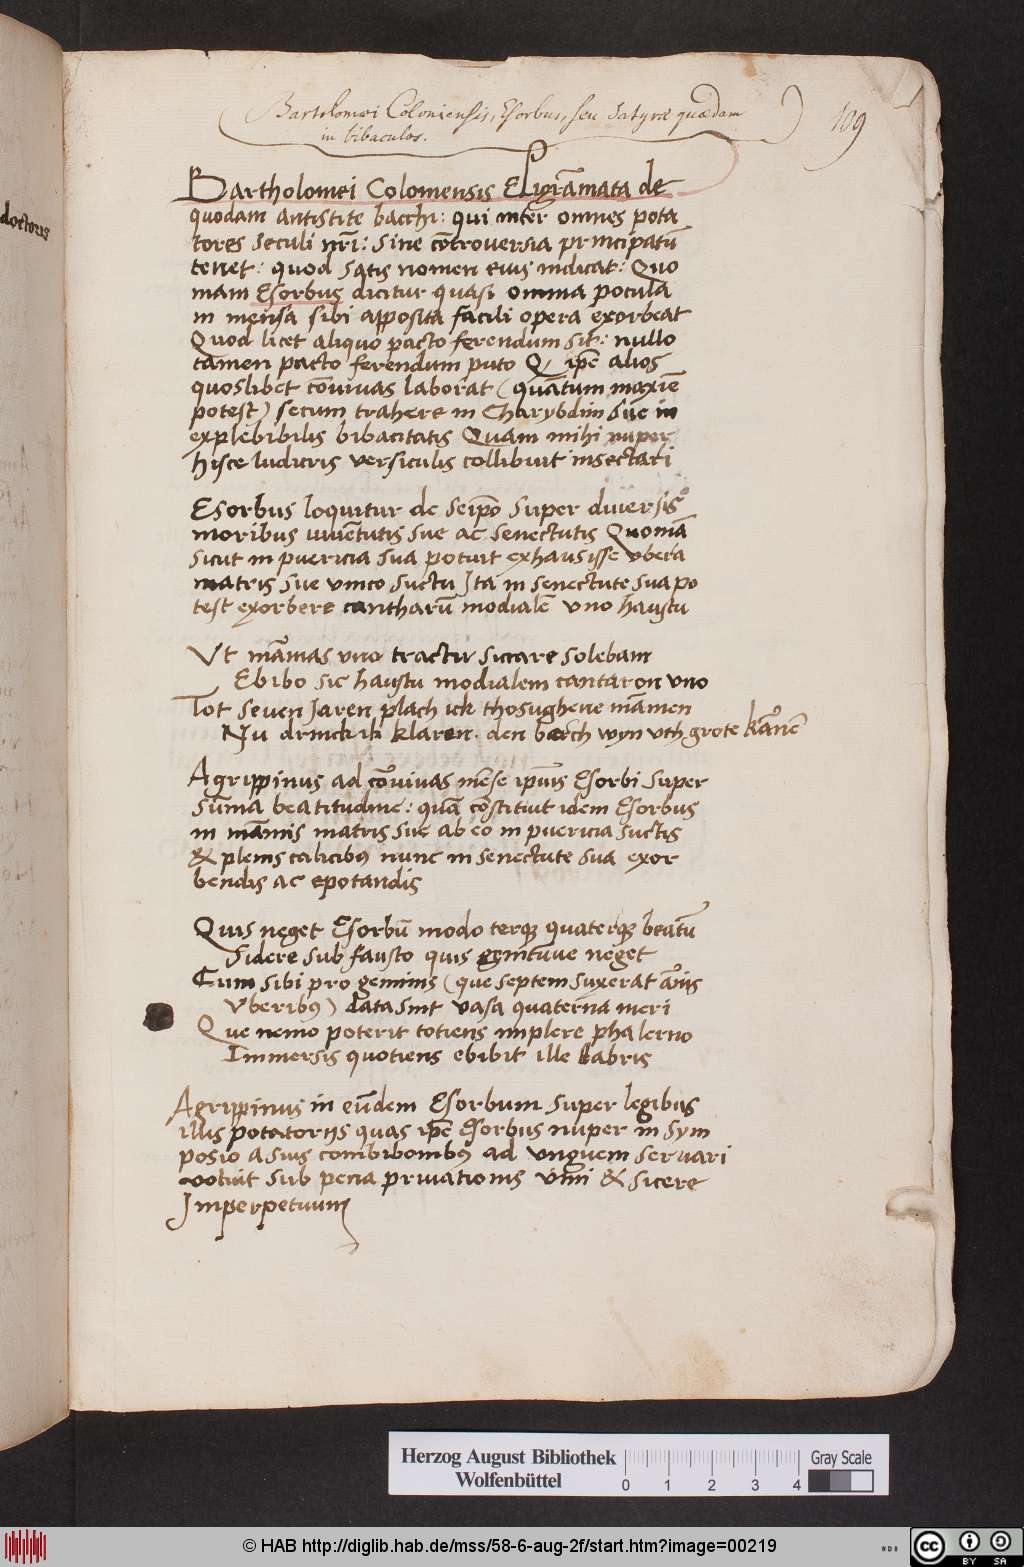 Bartholomei Coloniensis, Esorbus, seu Satyræ quædam
in bibaculos.
109
doctoris
Bartholomei Coloniensis Epigrāmata de
quodam antistite bacchi: qui inter omnes pota
tores seculi nr̄i: sine cōtroversia principatū
tenet: quod satis nomen eius indicat: Quo
niam Esorbus dicitur quasi omnia pocula
in mensa sibi apposita facili opera exorbeat
Quod licet aliquo pacto ferendum sit: nullo
tamen pacto ferendum puto Q ip̄e alios
quoslibet cōvivas laborat (quātum maxīe
potest) secum trahere in Charybdim sue in
explebibilis bibacitatis Quam mihi nuper
hisce ludicris versiculis collibuit insectari
Esorbus loquitur de seip̄o super diversis
moribus iuvētutis sue ac senectutis Quoniā
sicut in puericia sua potuit exhausisse vbera
matris sue vnico suctu Ita in senectute sua po
test exorbere cantharū modialē vno haustu
Vt māmas vno tractu siccare solebam
Ebibo sic haustu modialem cantaron vno
Tot seven Jaren plach ick thosughene māmen
Nu drinck ik klaren. den wyn vth grote kānē
Agrippinus ad cōvivas mēse ip̄ius Esorbi super
sūma beatitudine: quā cōstituit idem Esorbus
in māmis matris sue ab eo in puericia suctis
& plenis calicibꝰ nunc in senectute sua exor
bendis ac epotandis
Quis neget Esorbū modo terqꝫ quaterqꝫ beatū
Sidere sub fausto quis genitūve neget
Cum sibi pro geminis (que septem suxerat ānis
Vberibꝰ) data sint vasa quaterna meri
Que nemo poterit totiens implere phalerno
Immersis quotiens ebibit ille labris
Agrippinus in eūdem Esorbum super legibus
illis potatorijs quas ip̄e Esorbus nuper in sym
posio a suis combibonibꝰ ad vnguem servari
voluit sub pena privationis vini & sicere
Imperpetuum
Herzog August Bibliothek
Wolfenbüttel
0 1 2 3 4
Gray Scale
© HAB http://diglib.hab.de/mss/58-6-aug-2f/start.htm?image=00219
cc BY SA